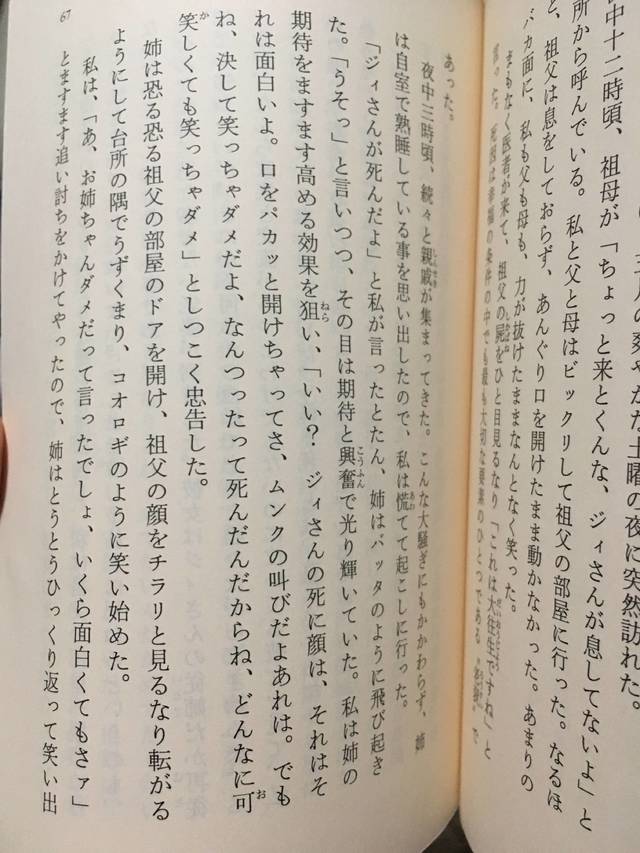 月の爽やかな土曜の夜に突然訪れた。
中十二時頃、祖母が「ちょっと来とくんな、ジィさんが息してないよ」と
所から呼んでいる。私と父と母はビックリして祖父の部屋に行った。なるほ
と、祖父は息をしておらず、あんぐり口を開けたまま動かなかった。あまりの
バカ面に、私も父も母も、力が抜けたままなんとなく笑った。
まもなく医者が来て、祖父の屍をひと目見るなり「これは大往生ですね」と
った。死因は幸福の条件の中でも最も大切な要素のひとつである で
あった。
夜中三時頃、続々と親戚が集まってきた。こんな大騒ぎにもかかわらず、姉
は自室で熟睡している事を思い出したので、私は慌てて起こしに行った。
「ジィさんが死んだよ」と私が言ったとたん、姉はバッタのように飛び起き
た。「うそっ」と言いつつ、その目は期待と興奮で光り輝いていた。私は姉の
期待をますます高める効果を狙い、「いい？ ジィさんの死に顔は、それはそ
れは面白いよ。口をパカッと開けちゃってさ、ムンクの叫びだよあれは。でも
ね、決して笑っちゃダメだよ、なんつったって死んだんだからね、どんなに可
笑しくても笑っちゃダメ」としつこく忠告した。
姉は恐る恐る祖父の部屋のドアを開け、祖父の顔をチラリと見るなり転がる
ようにして台所の隅でうずくまり、コオロギのように笑い始めた。
私は、「あ、お姉ちゃんダメだって言ったでしょ、いくら面白くてもさァ」
とますます追い討ちをかけてやったので、姉はとうとうひっくり返って笑い出
67